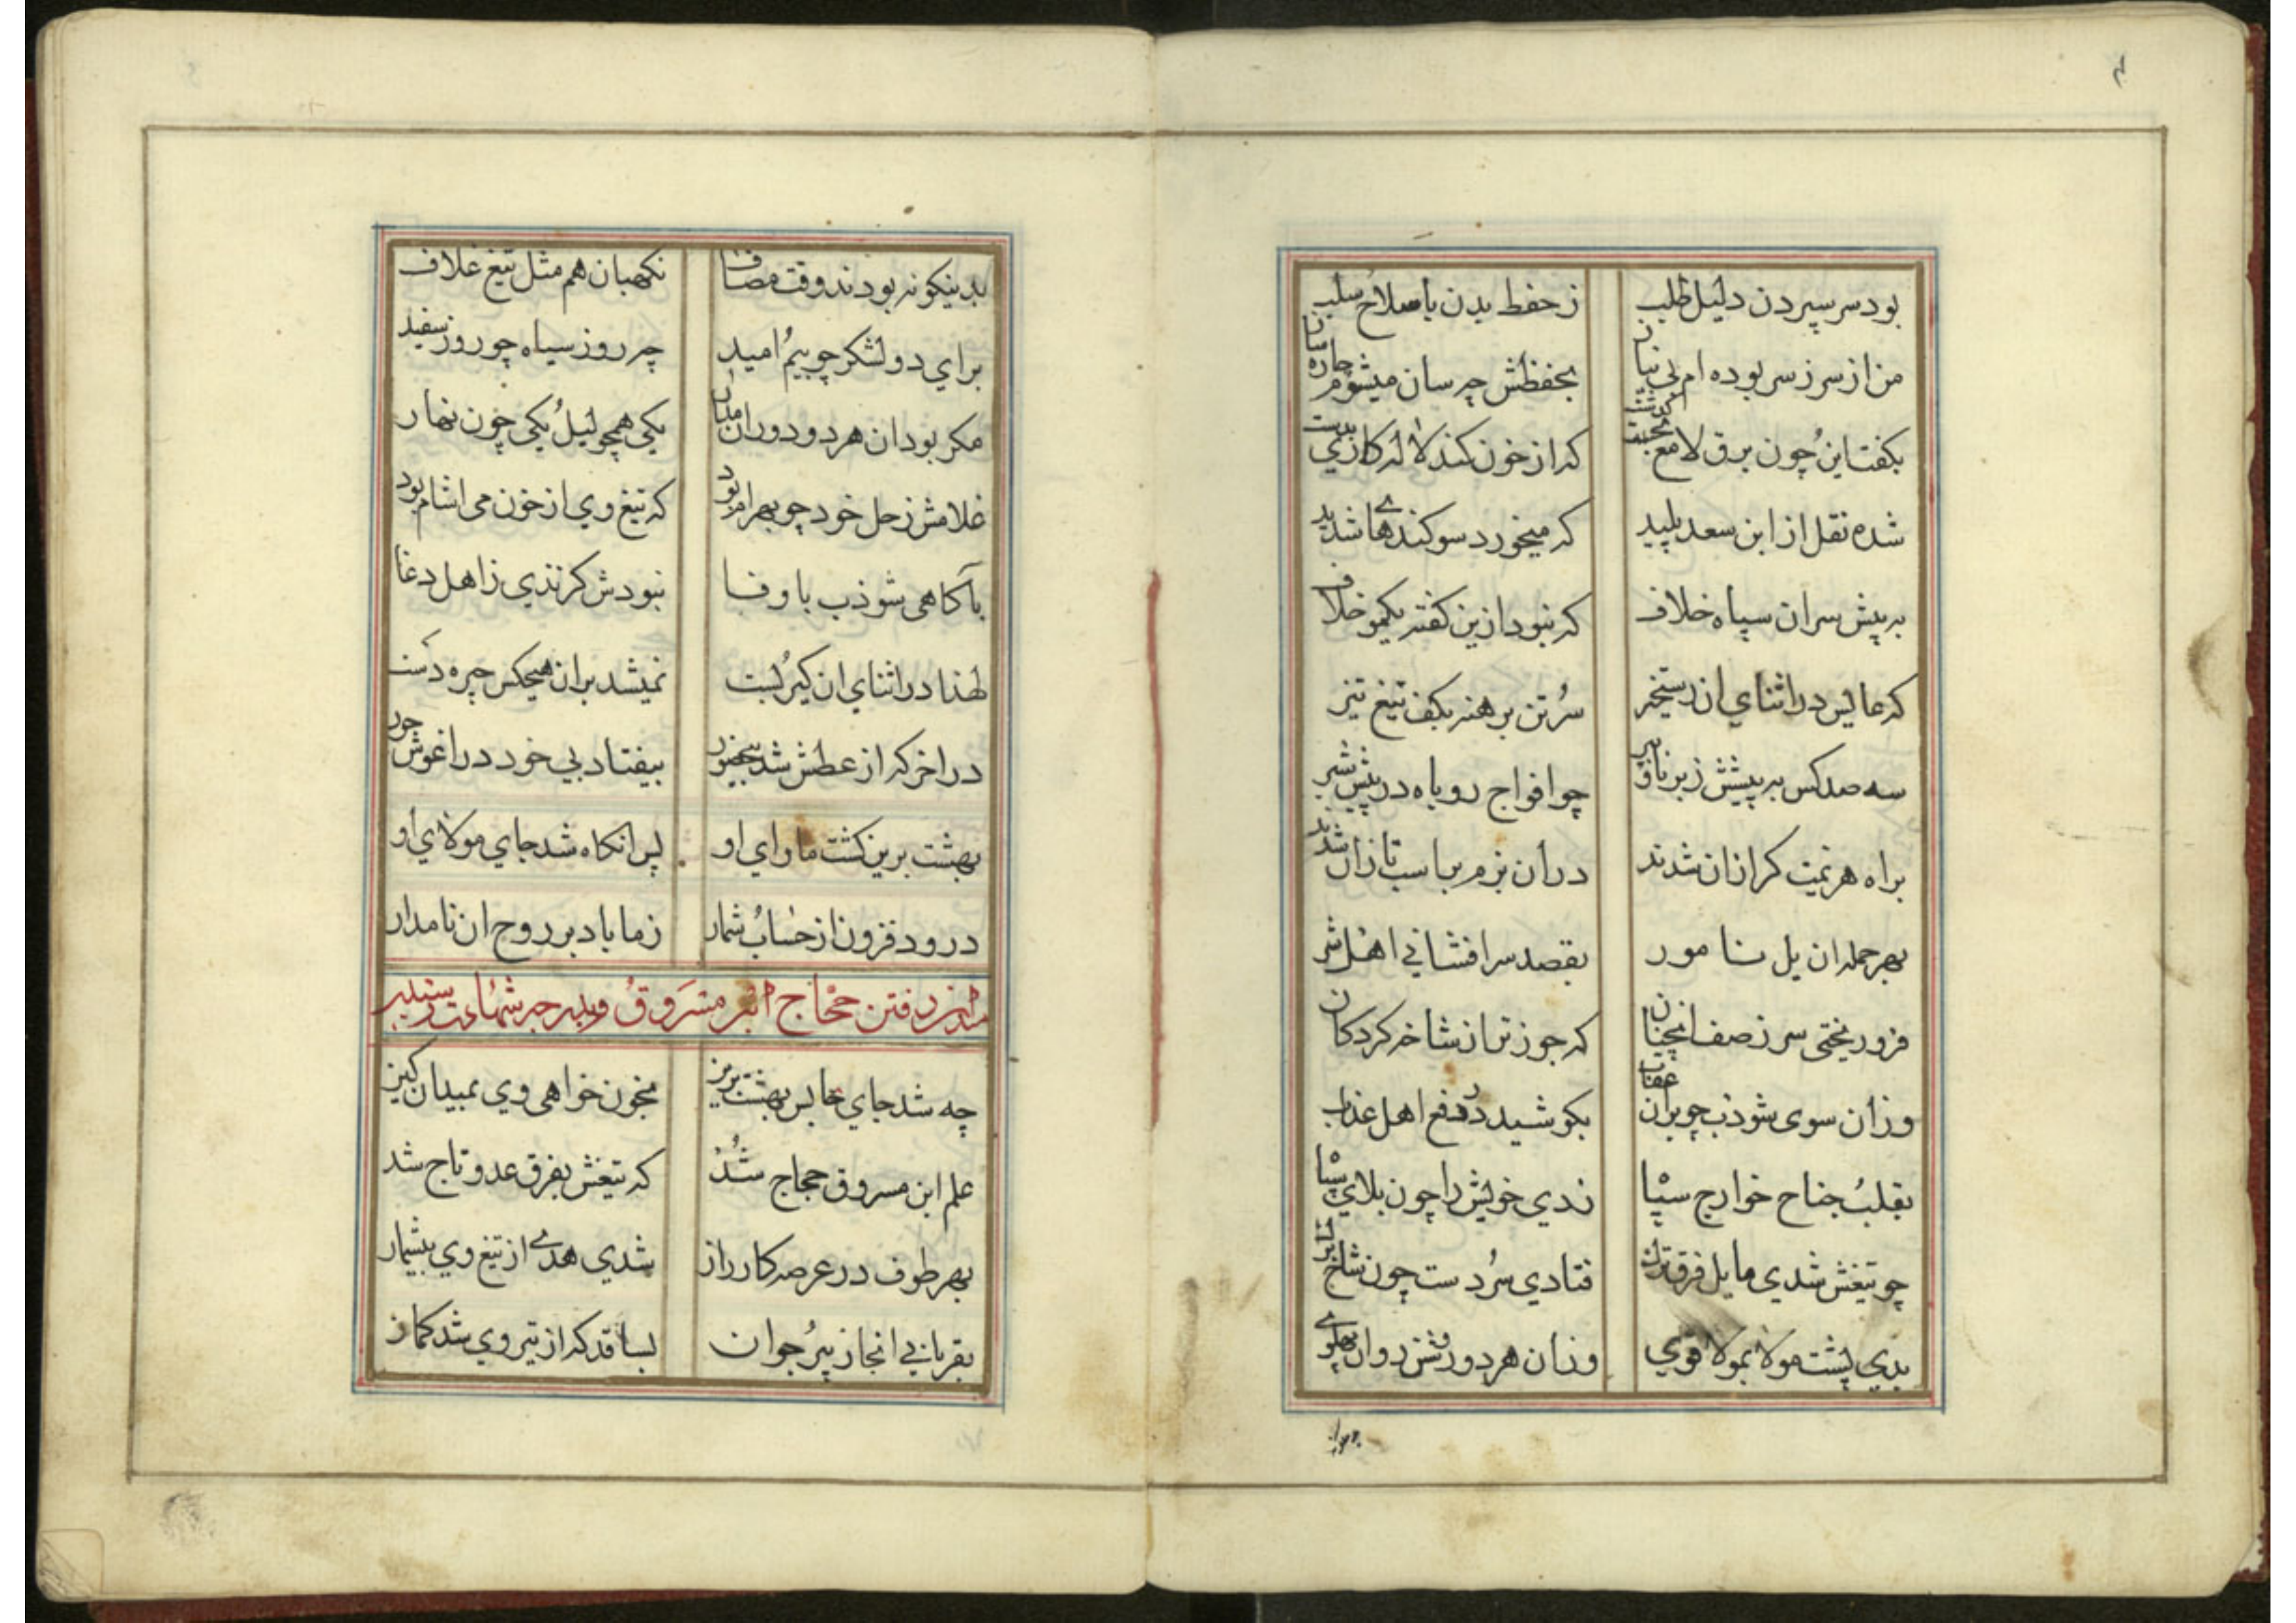 بود سر سپردن دلیل طلب
ز حفظ بدن با صلاح سلب
من از سر ز سر بوده ام بی نیان
بحفظش چر سان میشوم چاره سان
بکفت این چون برق لامع
که از خون کند لاله کازی بدست
شده نقل از ابن سعد پلید
که میخورد سوکندهای شدید
به پیش سران سپاه خلاف
که نبود ازین کفته یکمو خلاف
که عابس در اثنای ان رستخیز
سر و تن برهنه بکف تیغ تیز
سه صد کس به پیشش ز برنا و پیر
چو افواج روباه در پیش شیر
براه هزیمت کرازان شدند
در ان بزم بر اسب تازان شدند
بهر حمله ان یل نامور
بقصد سر افشانی اهل شر
فرو ریختی سر ز صف انچنان
که جوز تر از شاخه کردکان
وزان سوی شوذب چو بران عقاب
بکوشید در دفع اهل عذاب
بقلب و جناح خوارج سپا
زدی خویش را چون بلای سیا
چو تیغش شدی مایل فرق تران
فتادی سر و دست چون شاخ
بدی پشت مولا بمولا قوی
وزان هر دو
بدینکونه
بدینکونه بودند وقت مصاف
نکهبان هم مثل تیغ غلاف
برای دو لشکر چو بیم امید
چر روز سیاه چو روز سفید
مکر بود ان هر دو دوران مدار
یکی همچو لیل یکی چون نهار
غلامش زحل خود چو بهرام بود
که تیغ وی از خون می اشام بود
باکاهی شوذب با وفا
نبودش کزندی ز اهل دغا
لهذا در اثنای ان کیر بست
نمیشد بران هیچکس چیره دست
در اخر که از عطش شد بیحضور
بیفتاد بی خود در اغوش حور
بهشت برین کشت ماوای او
پس انکاه شد جای مولای او
درود فزون از حساب شمار
ز ما باد بر روح ان نامدار
رفتن حجاج ابن مسروق و بدرجه شهادت رسیدن
چه شد جای عابس بهشت برین
بخون خواهی وی بمیدان کین
علم ابن مسروق حجاج شد
که تیغش بفرق عدو تاج شد
بهر طوف در عرصه کارزار
شدی هدی از تیغ وی بیشمار
بقربانی انجا ز پیر جوان
بسا قد که از تیر وی شد کمان